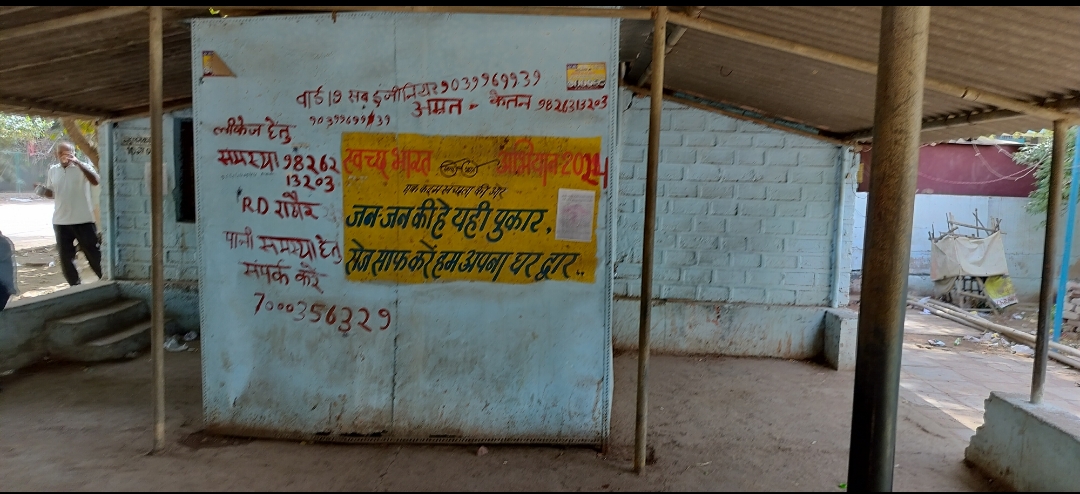 वार्ड 19 सब इंजीनियर 9039969939
अमृत - केतन 9826313203
9039969939
लीकेज हेतु
समस्या 98262
13203
R D राठौर
पानी समस्या हेतु
संपर्क करें
7000356329
स्वच्छ भारत अभियान 2024
एक कदम स्वच्छता की ओर
जन-जन की है यही पुकार,
रोज साफ करें हम अपना घर द्वार..